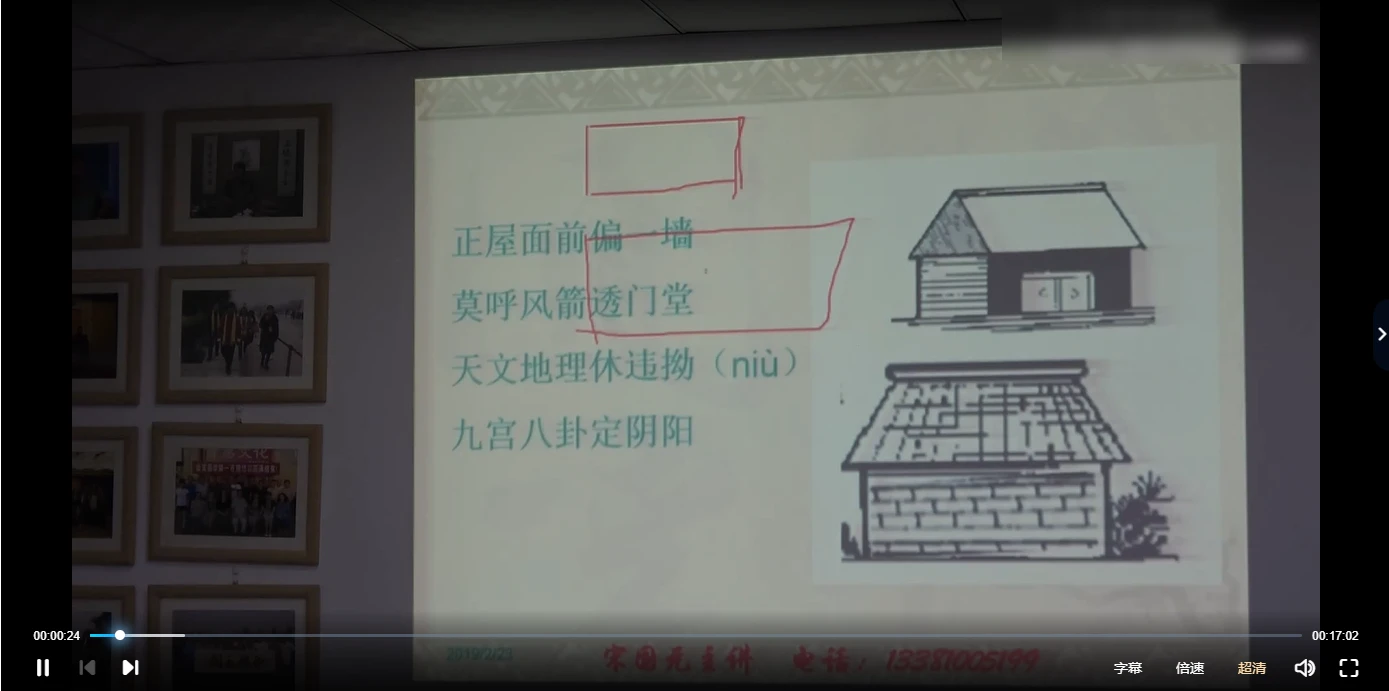 正屋面前偏一墙
莫呼风箭透门堂
天文地理休违拗（niù）
九宫八卦定阴阳
2019/2/23
宋国元主讲 电话：13381005199
00:00:24
00:17:02
字幕
倍速
超清